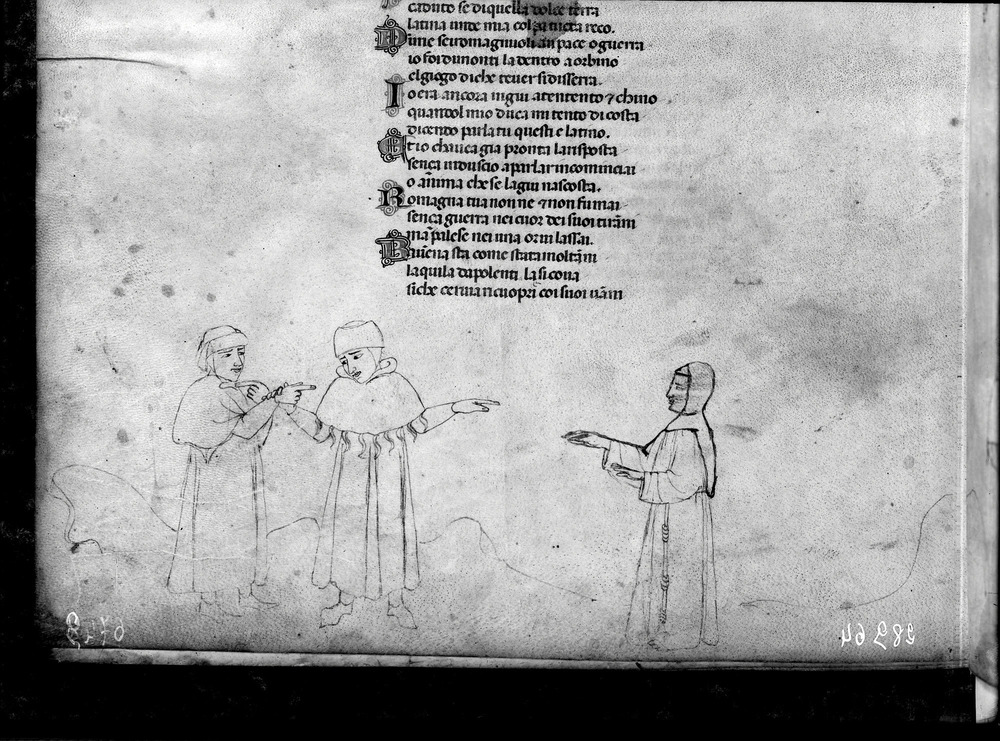 caduto se di quella dolce terra
latina unde mia colpa tucta reco.
Dime se i romagniuoli an pace o guerra
io for di monti la dentro a orbino
el giogo di che tever si disserra.
Io era ancora ingiu atentento ⁊ chino
quando l mio duca mi tento di costa
dicendo parla tu questi e latino.
Et io chavea gia pronta la risposta
sença indugio a parlar incominciai
o aīma che se lagiu nascosta.
Romagna tua non ne ⁊ non fu mai
sença guerra nei cuor dei suoi tirāni
ma palese nei una or in lassai.
Ravēna sta come stata molt āni
laquila da polenti la si cova
si che cervia ricuopre coi suoi vāni
28264